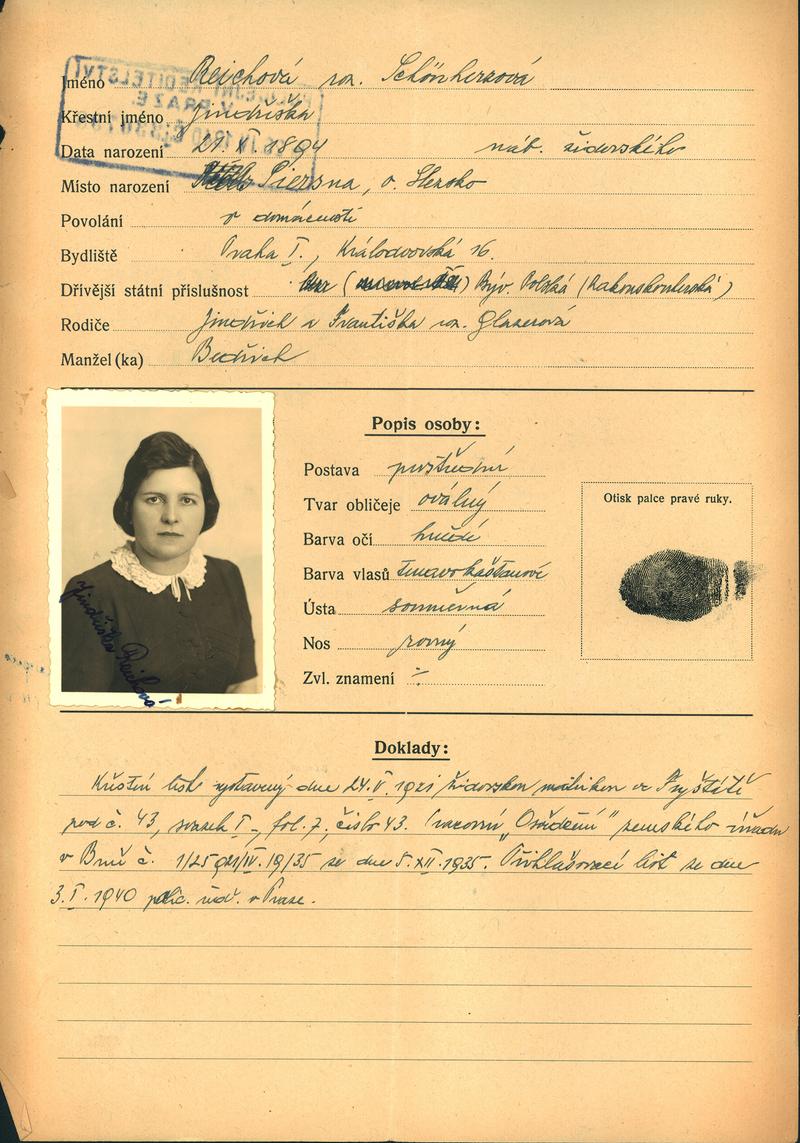 Jméno Reichová roz. Schönherzová
Křestní jméno Jindřiška
Data narození 21. X. 1894 náb. židovského
Místo narození Piersna, o. Slezsko
Povolání v domácnosti
Bydliště Praha I., Královdvorská 16.
Dřívější státní příslušnost Býv. Polská (Rakouskouherská)
Rodiče Jindřich a Františka roz. Glaserová
Manžel (ka) Bedřich
Popis osoby:
Postava prostřední
Tvar obličeje oválný
Barva očí hnědé
Barva vlasů tmavokaštanové
Ústa souměrná
Nos rovný
Zvl. znamení ÷
Otisk palce pravé ruky.
Jindřiška Reichová
Doklady:
Křestní list vystavený dne 24. V. 1921 židovskou matrikou ve Fryštátě
pod č. 43, svazek I., fol. 7, číslo 43. "Osvědčení" zemského úřadu
v Brně č. IV. 19/35 ze dne 5. XII. 1935. Přihlašovací list ze dne
3. I. 1940 polic. řed. v Praze.